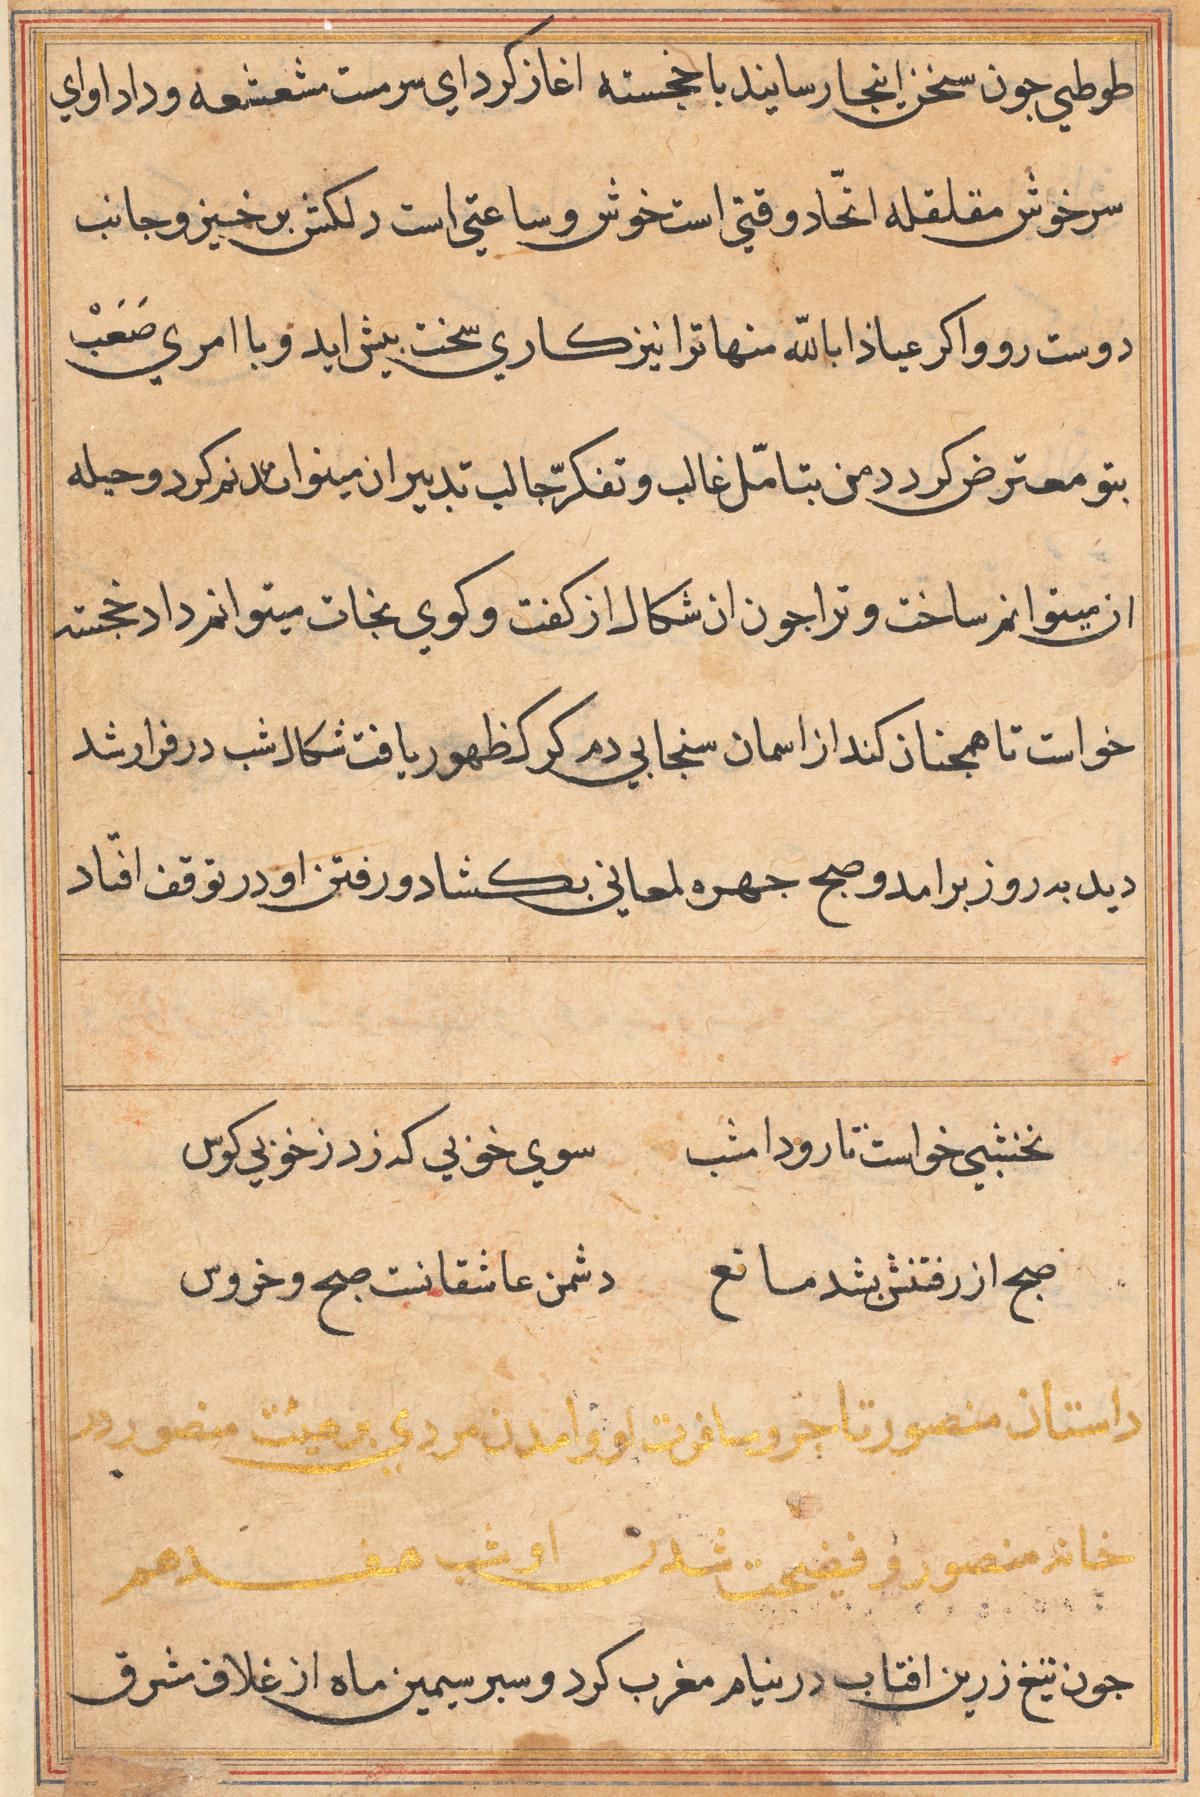 طوطي جون سخن اينجا رسانيد با خجسته اغاز كرد اي سرمست مشعشعه وداد اواي
سرخوش مقلقله اتحّاد وقتي است خوش وساعتي است دلكش برخيز وجانب
دوست رو واكر عياذا بالله منها ترا نيز كاري سخت بيش ايد و با امري صَعَبْ
بتو معترض كردد من بتامّل غالب و تفكرّ جالب تدبير ان ميتوانم كرد و حيله
ان ميتوانم ساخت و ترا جون ان شكال از كفت و كوي نجات ميتوانم داد خجسته
خواست تا همجنان كند از اسمان سنجابي دم كرك ظهور يافت شكال شب در فرار شد
ديد به روز برامد و صبح جهره لمعاني بكشاد و رفتن او در توقف افتاد
نخشبي خواست تا رود امشب سوي خوبي كه زد ز خوبي كوس
صبح از رفتنش بشد مانع دشمن عاشقانت صبح و خروس
داستان منصور تاجر و مسافرت او و امدن مردي بر هيئت منصور در
خانه منصور و فضيحت شدن او شب هفدهم
جون تيغ زرين افتاب در نيام مغرب كرد و سبر سيمين ماه از غلاف شرق